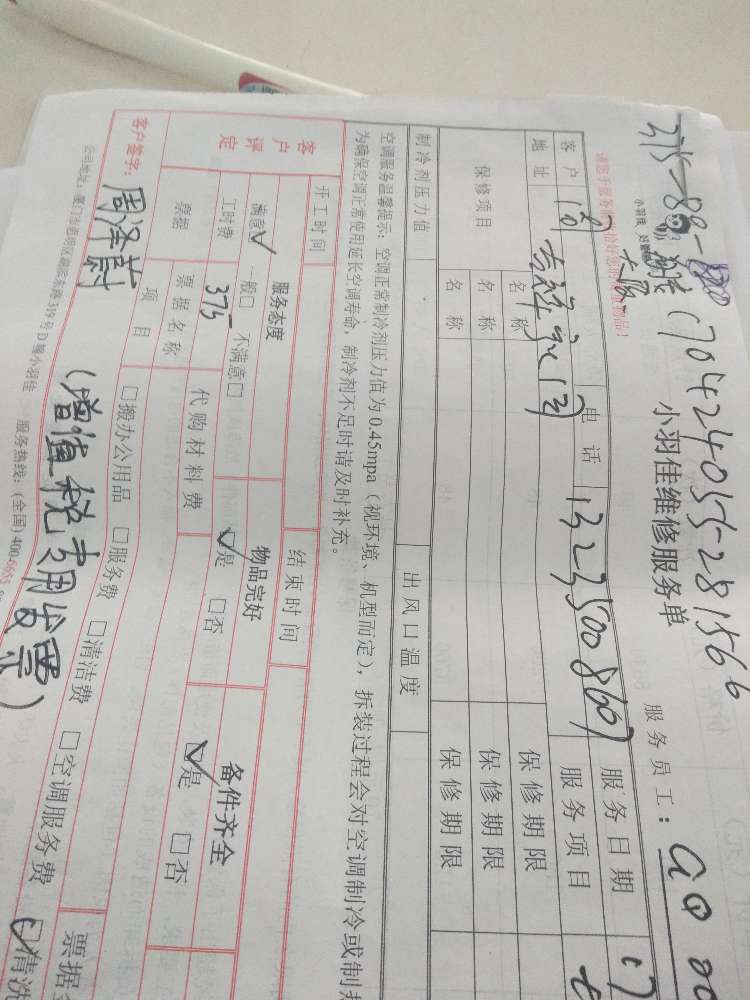 315-88-
(70424055-281566
小羽佳 好管家
小羽佳维修服务单
服务员工:
客户
电话 13235300869
服务日期 17
地址 吉祥家园
服务项目
保修项目
名称 保修期限
名称 保修期限
名称 保修期限
制冷剂压力值
出风口温度
空调服务温馨提示:空调正常制冷剂压力值为0.45mpa(视环境、机型而定),拆装过程会对空调制冷或制热
为确保空调正常使用延长空调寿命,制冷剂不足时请及时补充。
开工时间
结束时间
客户评定
服务态度
物品完好
备件齐全
满意☑ 一般□ 不满意□
☑是 □否
☑是 □否
工时费 375
代购材料费
票据
票据名称
项目
□搬办公用品 □服务费 □清洁费 □空调服务费 ☑清洗
票据
客户签字:周泽蔚
(增值税专用发票)
公司地址:厦门市思明区湖滨东路319号D幢小羽佳 服务热线:(全国)400-6655